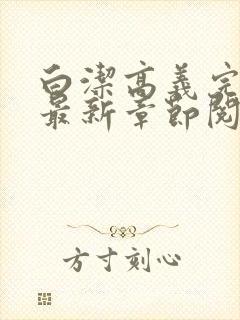 白潔高義完
最新章節閱
方寸刻心